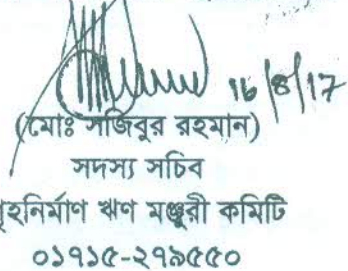 16/8/17
(মোঃ সজিবুর রহমান)
সদস্য সচিব
গৃহনির্মাণ ঋণ মঞ্জুরী কমিটি
০১৭১৫-২৭৯৫৫০